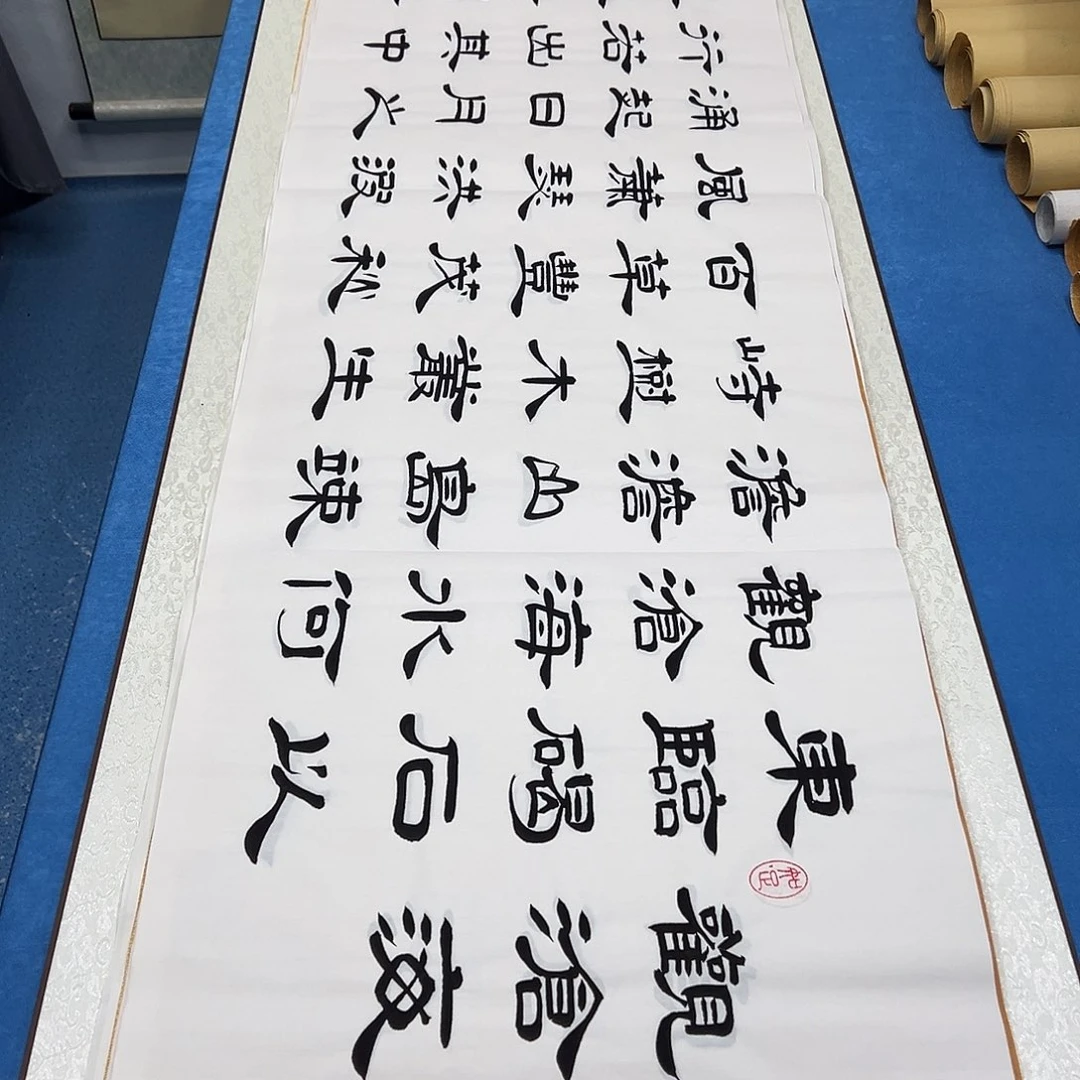 觀滄海
東臨碣石以
觀滄海水何
澹澹山島竦
峙樹木叢生
百草豐茂秋
風蕭瑟洪波
涌起日月之
行若出其中